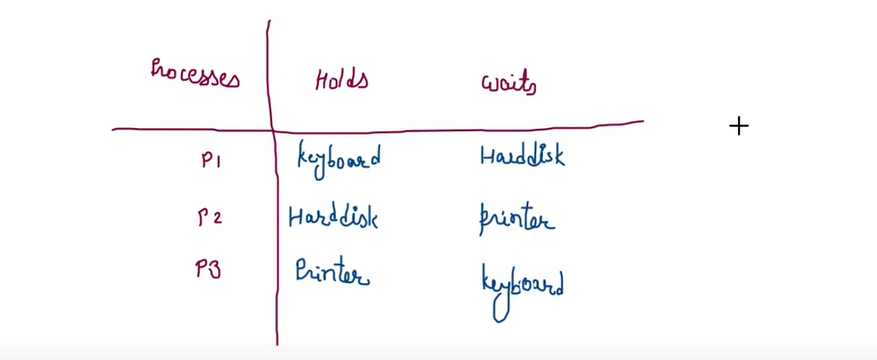 Processes Holds Waits
P1 keyboard Harddisk
P2 Harddisk printer
P3 Printer keyboard